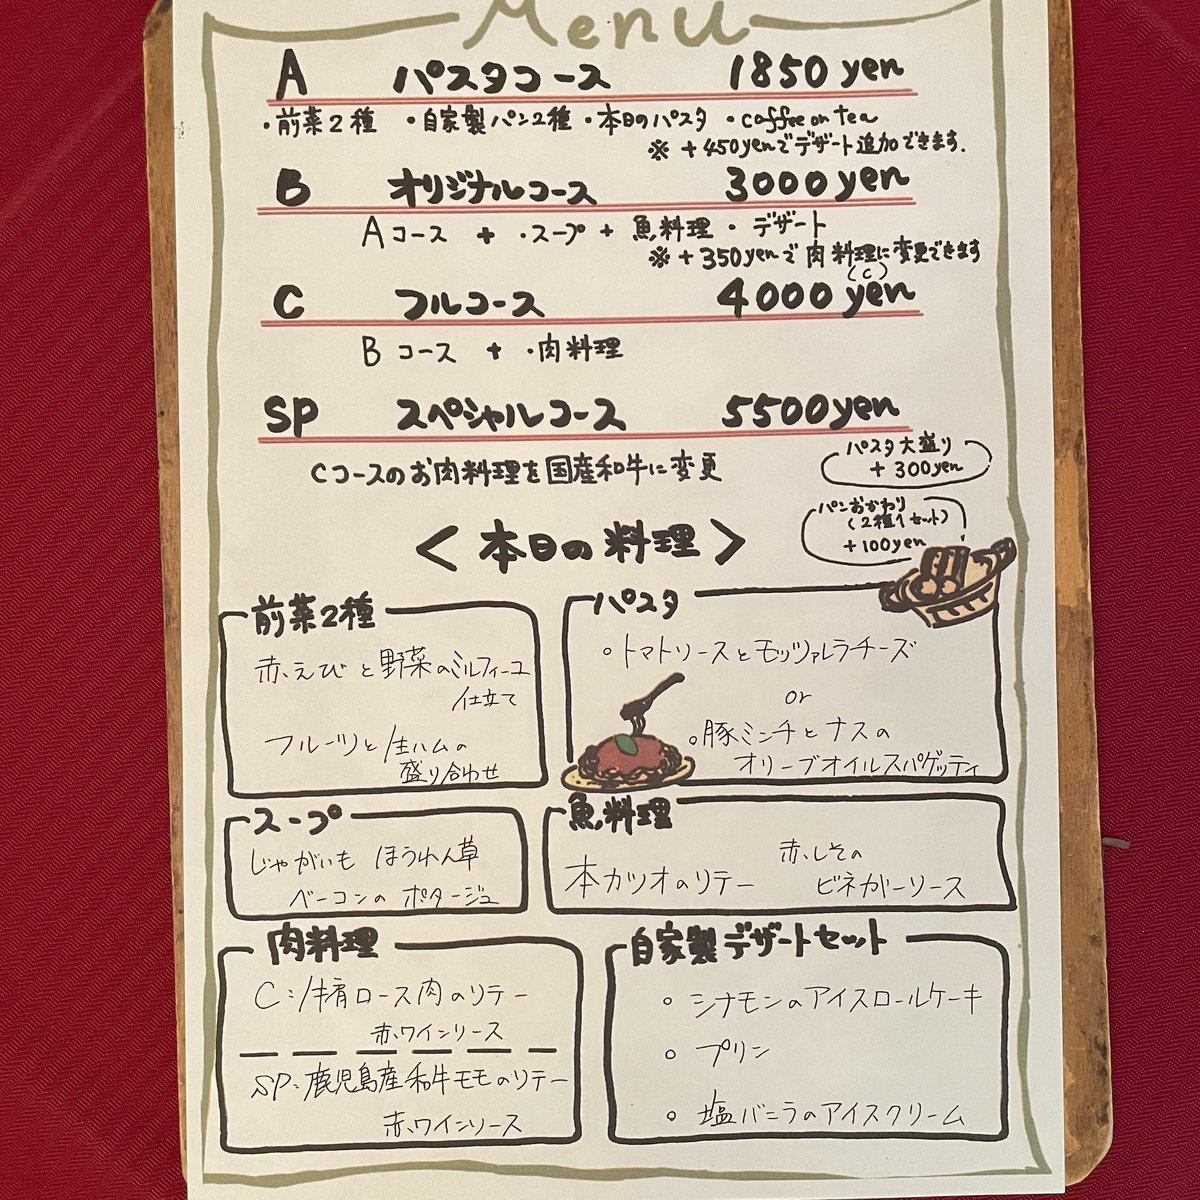 Menu
A パスタコース 1850 yen
・前菜2種 ・自家製パン2種 ・本日のパスタ ・coffee or tea
※ +450yenでデザート追加できます.
B オリジナルコース 3000 yen
Aコース + ・スープ + 魚料理 ・ デザート
※ +350yenで肉料理に変更できます
(C)
C フルコース 4000 yen
Bコース + ・肉料理
SP スペシャルコース 5500yen
Cコースのお肉料理を国産和牛に変更
パスタ大盛り
+300yen
パンおかわり
(2種1セット)
+100yen
<本日の料理>
前菜2種
赤えびと野菜のミルフィーユ
仕立て
フルーツと生ハムの
盛り合わせ
パスタ
○トマトソースとモッツァレラチーズ
or
○豚ミンチとナスの
オリーブオイルスパゲッティ
スープ
じゃがいも ほうれん草
ベーコンの ポタージュ
魚料理
本カツオのソテー 赤しその
ビネガーソース
肉料理
C:牛肩ロース肉のソテー
赤ワインソース
SP:鹿児島産和牛モモのソテー
赤ワインソース
自家製デザートセット
○ シナモンのアイスロールケーキ
○ プリン
○ 塩バニラのアイスクリーム